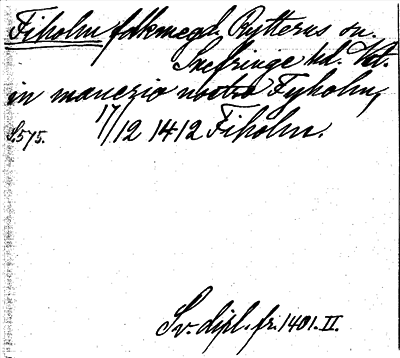 Fiholm folkmegd. Rytterns sn.
Snefringe hd. Vst.
in manerio nostro Fyholm,
S. 575. 17/12 1412 Fiholm.
Sv. dipl. fr. 1401. II.